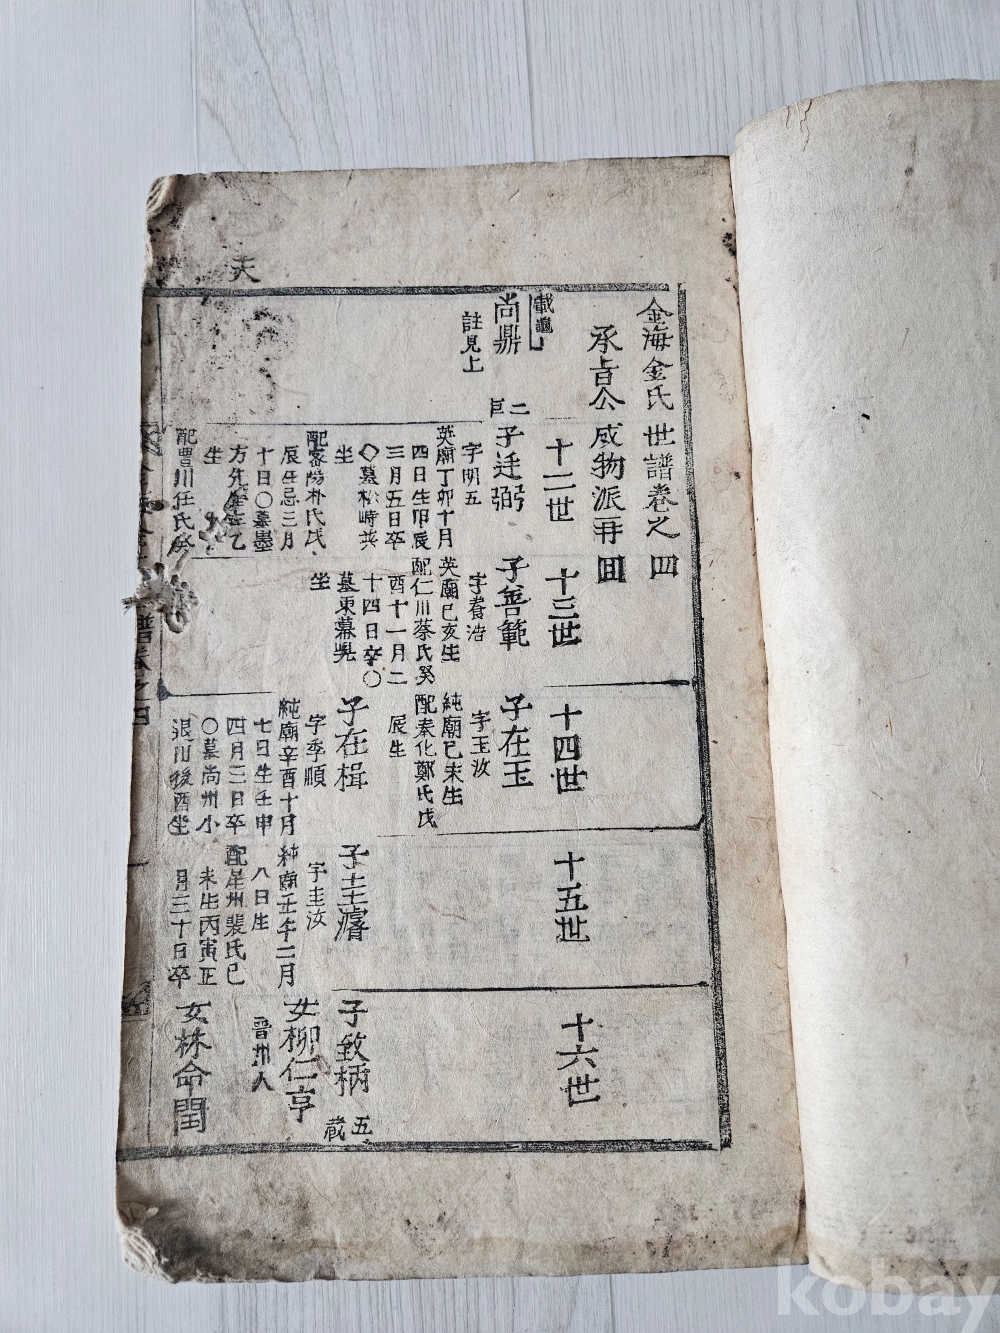 金海金氏世譜卷之四
承旨公咸物派再囬
十二世
十三世
十四世
十五世
十六世
尚鼎
註見上
二
子廷弼
字明五
英廟丁卯十月
四日生甲辰
三月五日卒
墓松峙艹
坐
配密陽朴氏戊
辰生忌三月
十日〇墓
方先塋乙
坐
配豊川任氏
子善範
字養浩
英廟己亥生
配仁川蔡氏癸
酉十一月二
十四日卒〇
墓東幕
坐
子在玉
字玉汝
純廟己未生
配奉化鄭氏戊
辰生
子在楫
字季順
純廟辛酉十月
七日生壬申
四月三日卒
〇墓尚州小
退川後酉坐
子圭濬
字圭汝
純廟壬午二月
八日生
配星州裴氏己
未生丙寅正
月三十日卒
子致柄
五
藏
女柳仁亨
晋州人
女林命閏
天
譜卷之四
kobay